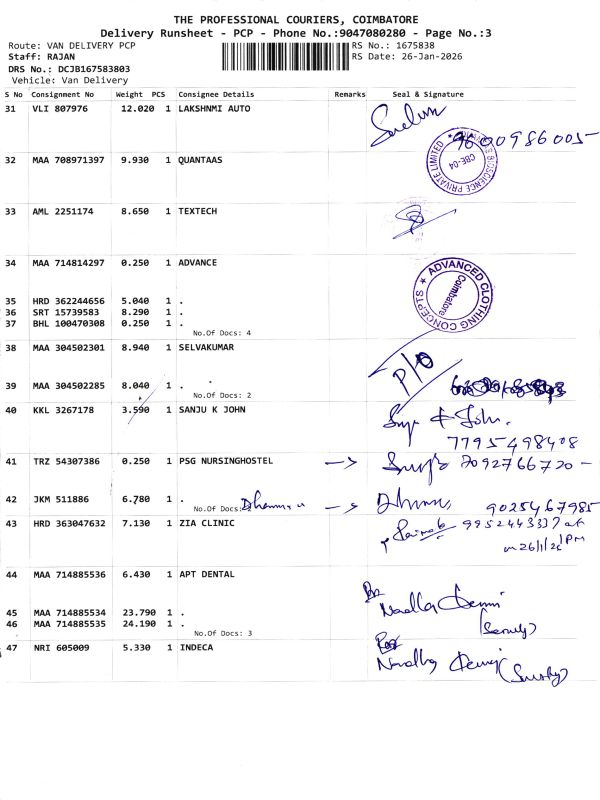 THE PROFESSIONAL COURIERS, COIMBATORE
Delivery Runsheet - PCP - Phone No.:9047080280 - Page No.:3
Route: VAN DELIVERY PCP RS No.: 1675838
Staff: RAJAN RS Date: 26-Jan-2026
DRS No.: DCJB167583803
Vehicle: Van Delivery
S No Consignment No Weight PCS Consignee Details Remarks Seal & Signature
31 VLI 807976 12.020 1 LAKSHNMI AUTO
9600986005
32 MAA 708971397 9.930 1 QUANTAAS
BIOSCIENCE PRIVATE LIMITED
CBE-04
33 AML 2251174 8.650 1 TEXTECH
34 MAA 714814297 0.250 1 ADVANCE
ADVANCED CLOTHING CONCEPTS
Coimbatore
35 HRD 362244656 5.040 1 .
36 SRT 15739583 8.290 1 .
37 BHL 100470308 0.250 1 .
No.Of Docs: 4
38 MAA 304502301 8.940 1 SELVAKUMAR
P/O
39 MAA 304502285 8.040 1 .
No.Of Docs: 2
40 KKL 3267178 3.590 1 SANJU K JOHN
John.
7795498408
41 TRZ 54307386 0.250 1 PSG NURSINGHOSTEL
7092766720
42 JKM 511886 6.780 1 .
No.Of Docs: 2
9025467985
43 HRD 363047632 7.130 1 ZIA CLINIC
9952443337 at
on 26/1/26 1PM
44 MAA 714885536 6.430 1 APT DENTAL
45 MAA 714885534 23.790 1 .
46 MAA 714885535 24.190 1 .
No.Of Docs: 3
47 NRI 605009 5.330 1 INDECA